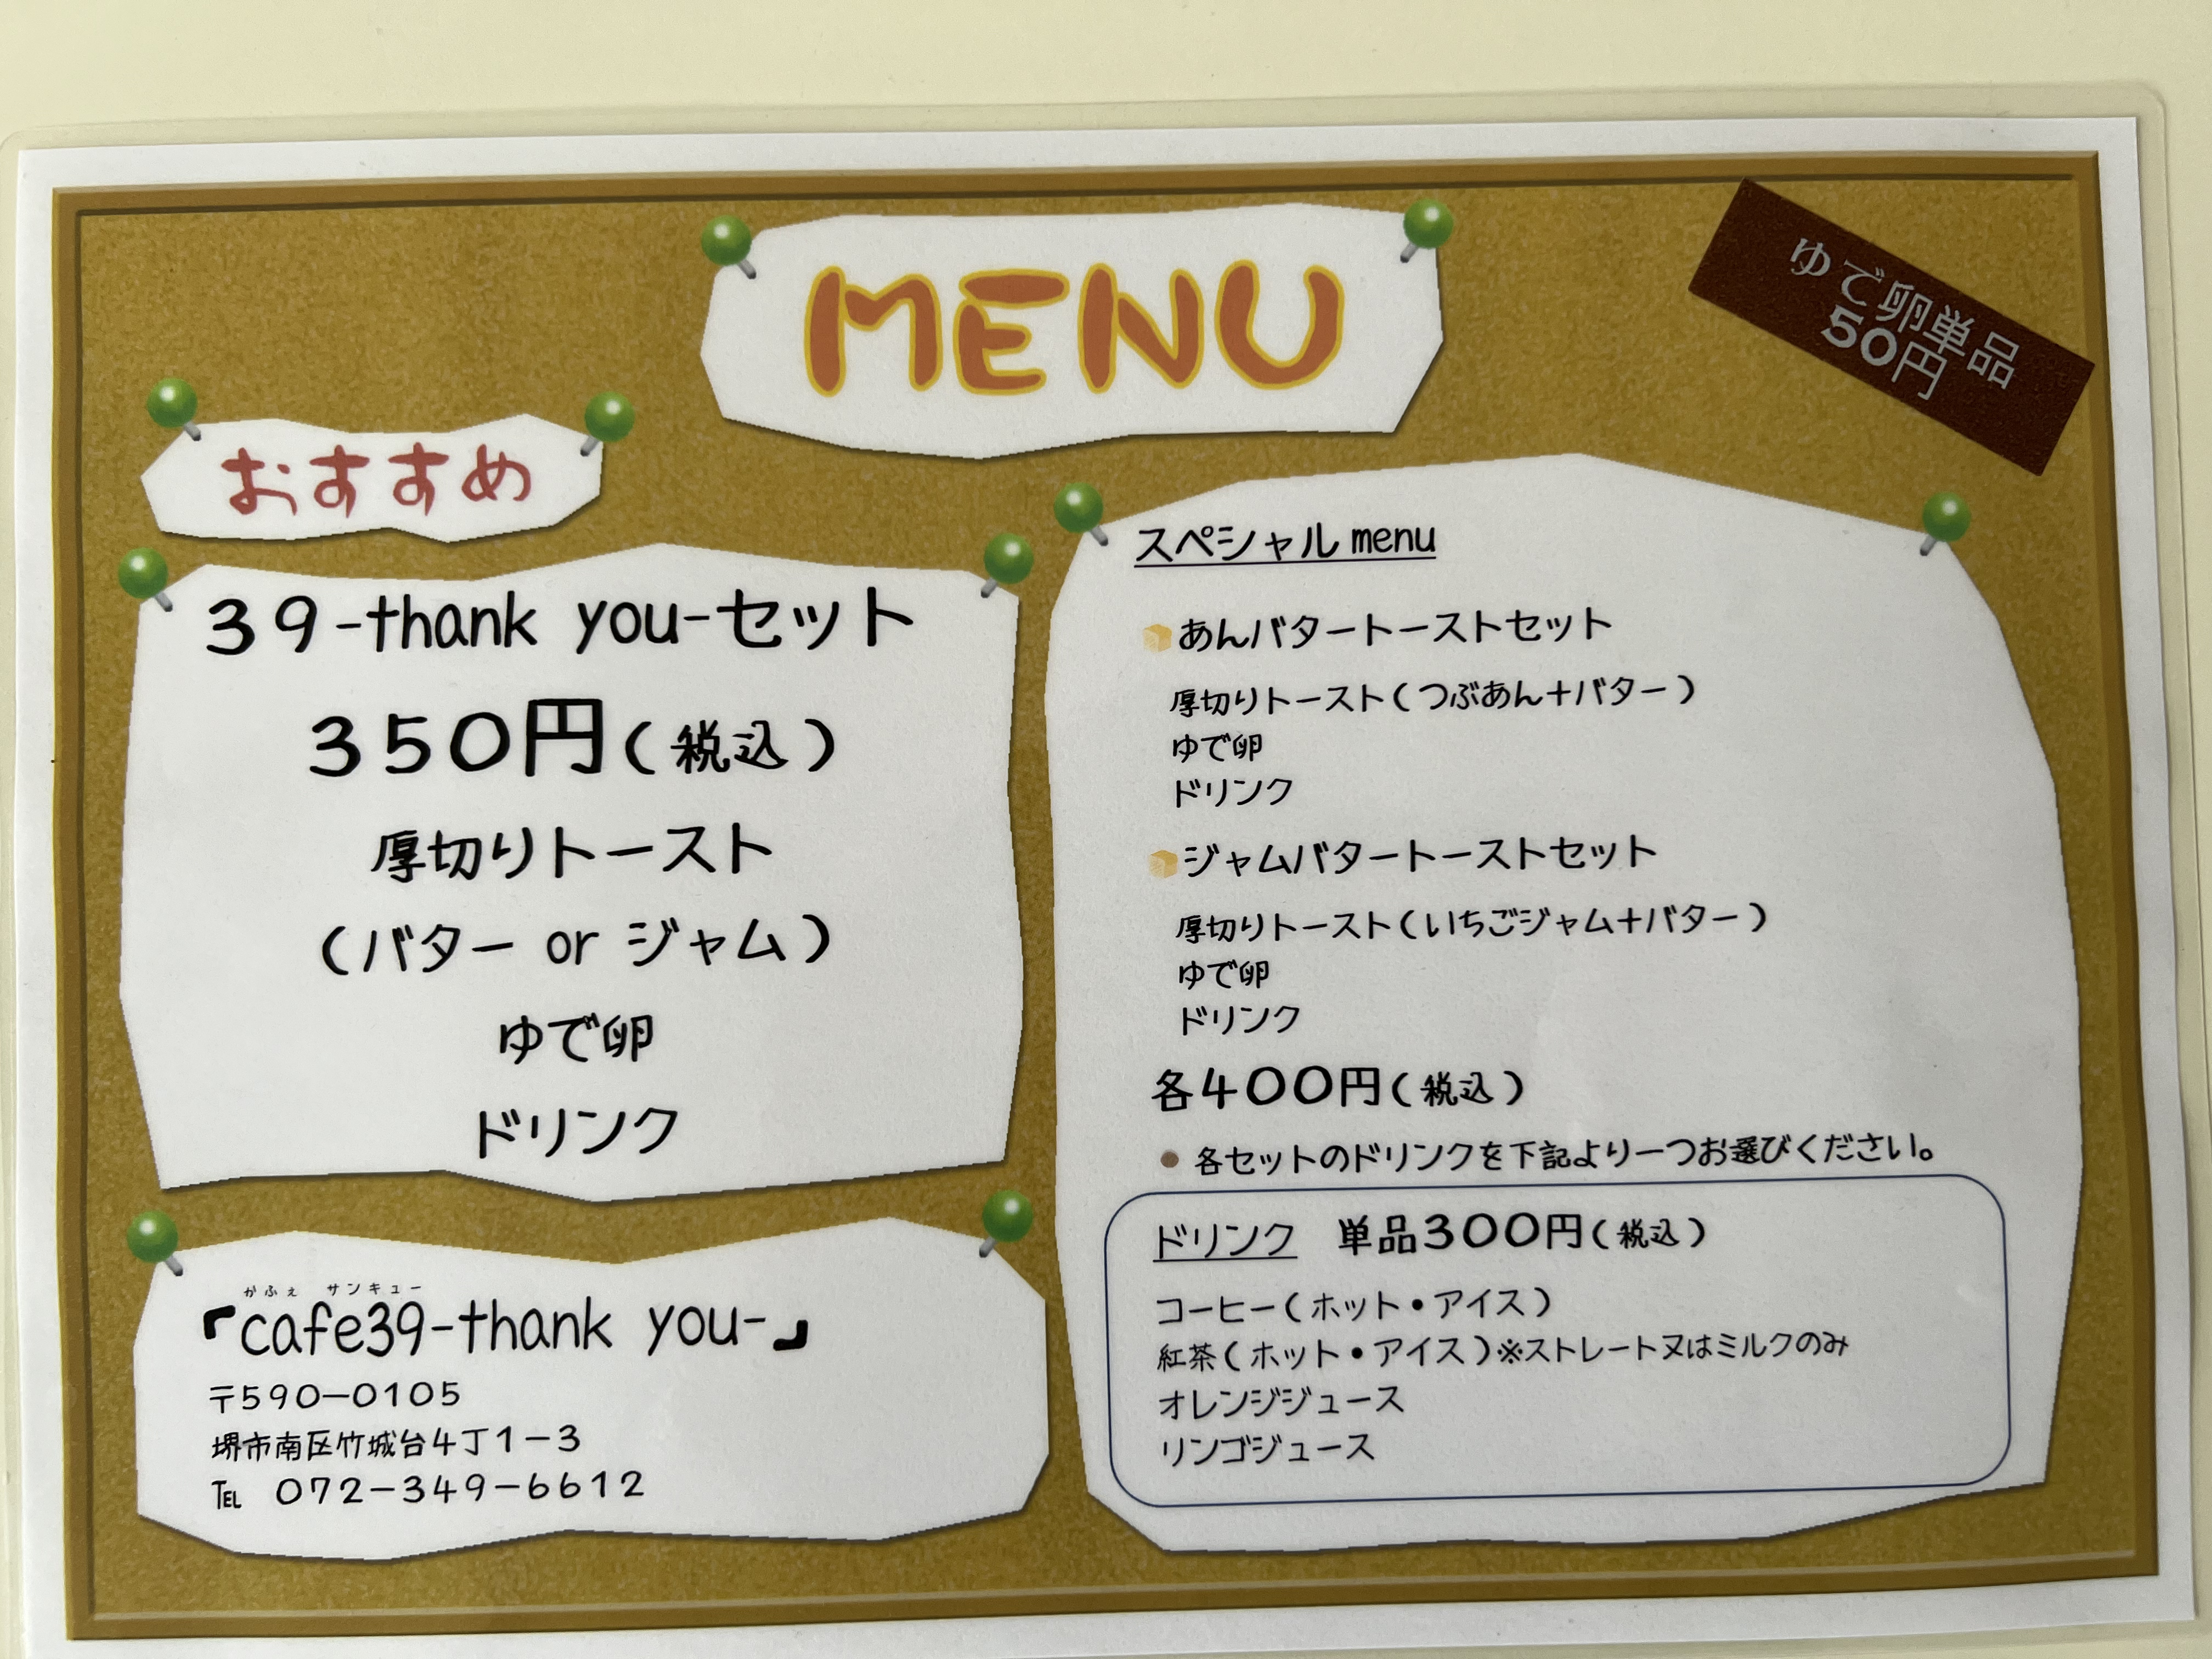 MENU
ゆで卵単品
50円
おすすめ
39-thank you-セット
350円(税込)
厚切りトースト
(バター or ジャム)
ゆで卵
ドリンク
かふぇ サンキュー
『cafe39-thank you-』
〒590-0105
堺市南区竹城台4丁1-3
℡ 072-349-6612
スペシャルmenu
あんバタートーストセット
厚切りトースト(つぶあん+バター)
ゆで卵
ドリンク
ジャムバタートーストセット
厚切りトースト(いちごジャム+バター)
ゆで卵
ドリンク
各400円(税込)
● 各セットのドリンクを下記より一つお選びください。
ドリンク 単品300円(税込)
コーヒー(ホット・アイス)
紅茶(ホット・アイス)※ストレート又はミルクのみ
オレンジジュース
リンゴジュース